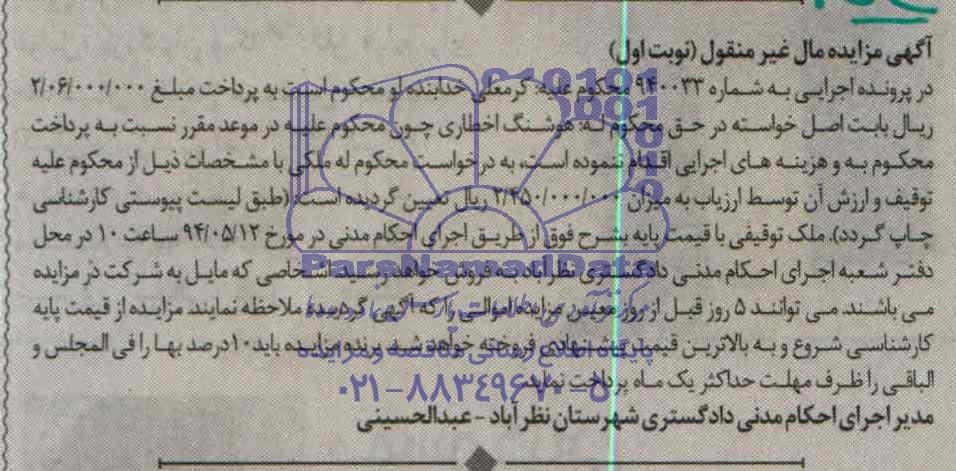 آگهی مزایده مال غیر منقول (نوبت اول)
در پرونده اجرایی به شماره ۹۴۰۰۳۳ محکوم علیه: کرمعلی خدابنده لو محکوم است به پرداخت مبلغ ۲/۰۶۰/۰۰۰/۰۰۰
ریال بابت اصل خواسته در حق محکوم له: هوشنگ اخطاری چون محکوم علیه در موعد مقرر نسبت به پرداخت
محکوم به و هزینه های اجرایی اقدام ننموده است، به درخواست محکوم له ملکی با مشخصات ذیل از محکوم علیه
توقیف و ارزش آن توسط ارزیاب به میزان ۲/۴۵۰/۰۰۰/۰۰۰ ریال تعیین گردیده است: (طبق لیست پیوستی کارشناسی
چاپ گردد). ملک توقیفی با قیمت پایه بشرح فوق از طریق اجرای احکام مدنی در مورخ ۹۴/۰۵/۱۲ ساعت ۱۰ در محل
دفتر شعبه اجرای احکام مدنی دادگستری نظرآباد به فروش خواهد رسید. اشخاصی که مایل به شرکت در مزایده
می باشند می توانند ۵ روز قبل از روز معین مزایده اموالی را که آگهی گردیده ملاحظه نمایند. مزایده از قیمت پایه
کارشناسی شروع و به بالاترین قیمت پیشنهادی فروخته خواهد شد. برنده مزایده باید ۱۰ درصد بها را فی المجلس و
الباقی را ظرف مهلت حداکثر یک ماه پرداخت نماید.
مدیر اجرای احکام مدنی دادگستری شهرستان نظر آباد - عبدالحسینی
ParsNamadData
پایگاه اطلاع رسانی مناقصه و مزایده
۰۲۱-۸۸۳۴۹۶۷۰-۵